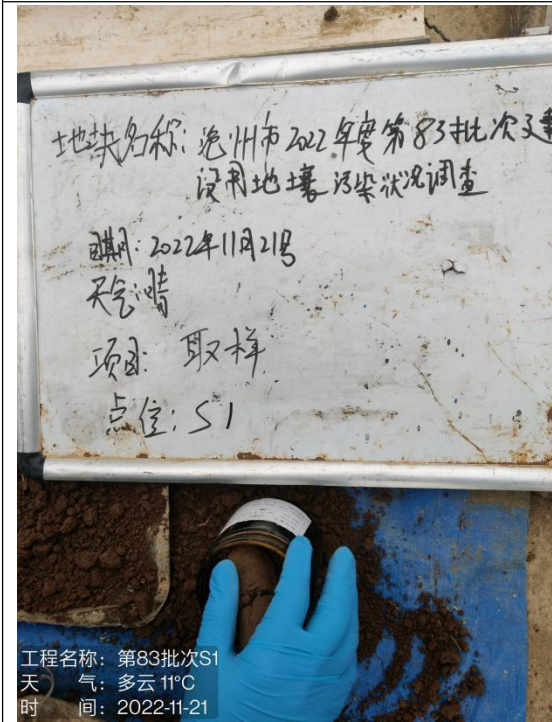 地块名称：沧州市2022年度第83批次建
设用地土壤污染状况调查
日期：2022年11月21号
天气：晴
项目：取样
点位：S1
工程名称：第83批次S1
天 气：多云 11℃
时 间：2022-11-21